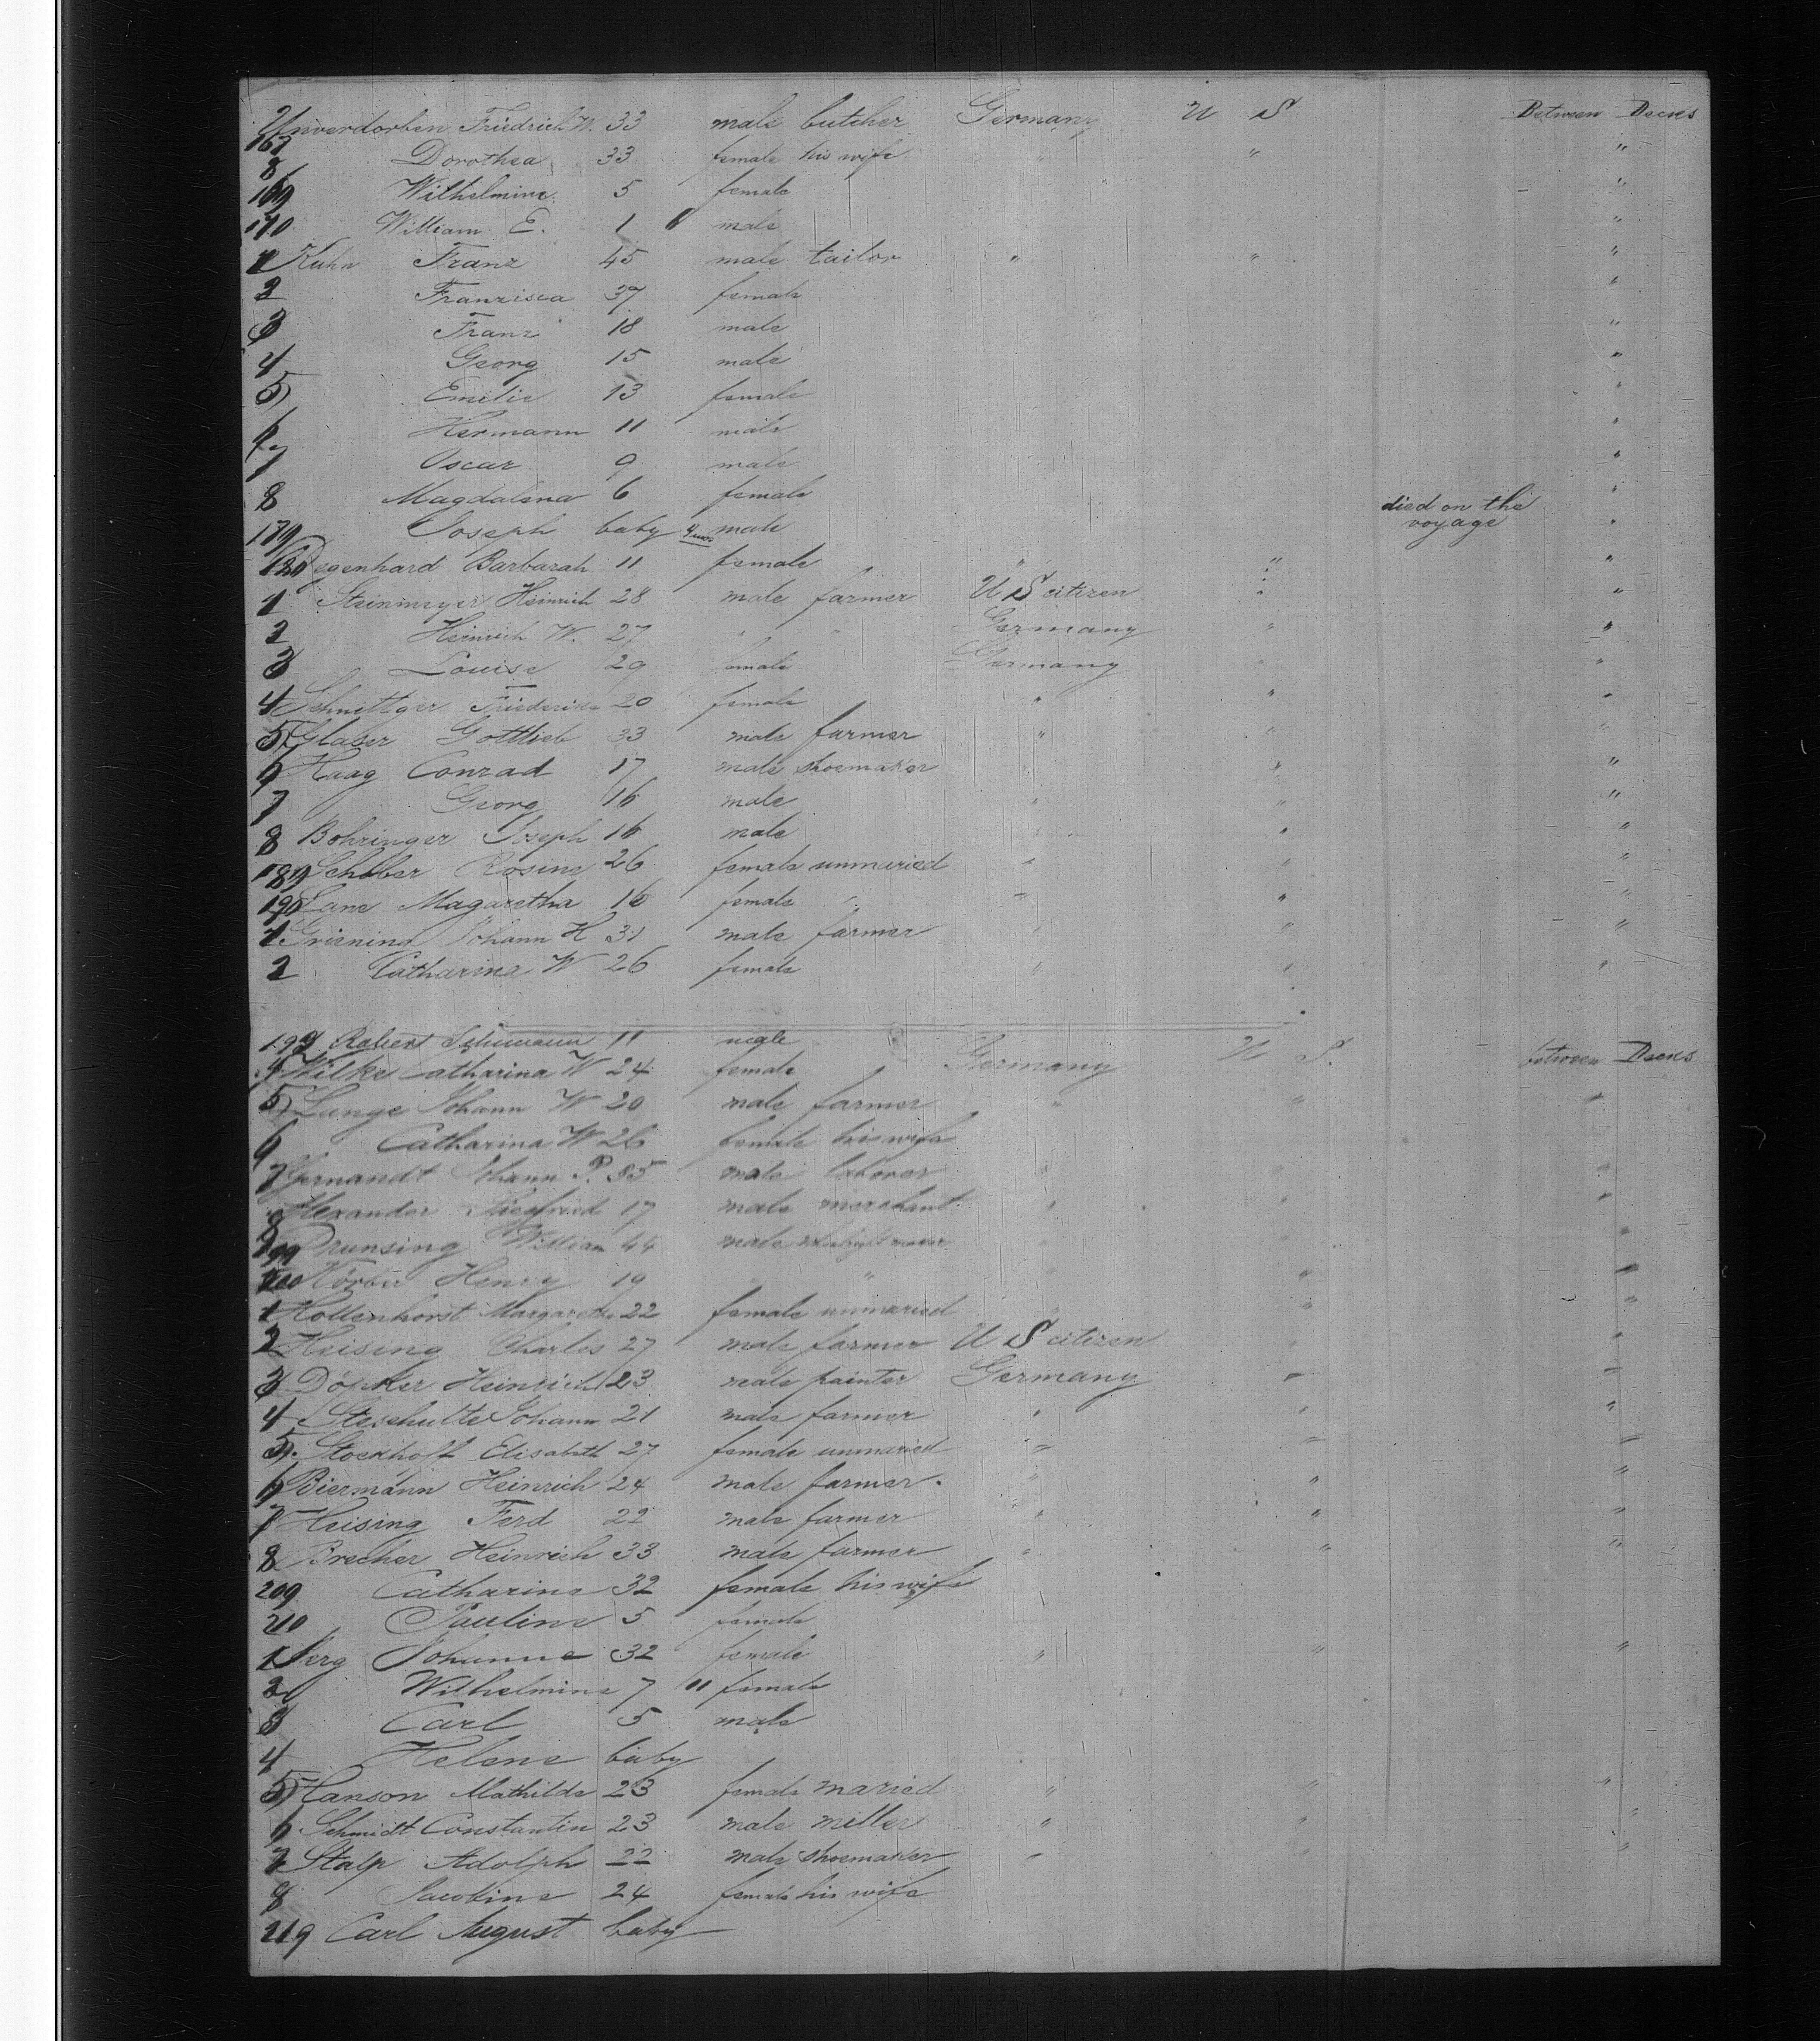 Unverdorben Friedrich W. 33 male butcher Germany U S Between Decks
167
8 Dorothea 33 female his wife " " "
169 Wilhelmine 5 female " "
170 William E. 1 male "
1 Kuhn Franz 45 male tailor " " "
2 Franzisca 37 female "
3 Franz 18 male "
4 Georg 15 male "
5 Emilie 13 female "
6 Hermann 11 male "
7 Oscar 9 male "
8 Magdalena 6 female "
179 Joseph baby 4 mos male died on the voyage "
180 Degenhard Barbarah 11 female " " "
1 Steinmeyer Heinrich 28 male farmer U S citizen " "
2 Heinrich W. 27 " " Germany " "
3 Louise 29 female Germany " "
4 Schnittger Friederike 20 female " " "
5 Glaser Gottlieb 33 male farmer " " "
6 Haag Conrad 17 male shoemaker " " "
7 Georg 16 male " " "
8 Bohringer Joseph 16 male " " "
189 Schober Rosine 26 female unmaried " " "
190 Lane Magaretha 16 female " " " "
1 Griening Johann H 31 male farmer " " "
2 Catharine W 26 female " " "
193 Robert Schumann 11 male
4 Wilke Catharina W 24 female Germany U S. between Decks
5 Lange Johann W 20 male farmer " " "
6 Catharina W 26 female his wife
7 Gernandt Johann P. 35 male laborer " " "
8 Alexander Siegfried 17 male merchant " " "
199 Prunsing William 44 male maker " " "
200 Henry 19 " " " "
1 Hollenhorst Margarethe 22 female unmaried " " "
2 Heising Charles 27 male farmer U S citizen " "
3 Döpker Heinrich 23 male painter Germany " "
4 Steschulte Johann 21 male farmer " " "
5 Stockhoff Elisabeth 27 female unmaried " " "
6 Biermann Heinrich 24 male farmer " " "
7 Heising Ferd 22 male farmer " " "
8 Brecher Heinrich 33 male farmer " " "
209 Catharine 32 female his wife
210 Pauline 5 female
1 Johanne 32 female " " "
2 Wilhelmine 7 11 female
3 Carl 5 male
4 Helene baby
5 Hanson Mathilde 23 female maried " " "
6 Schmidt Constantin 23 male miller " " "
7 Stalp Adolph 22 male shoemaker " " "
8 Jacobine 24 female his wife
219 Carl August baby